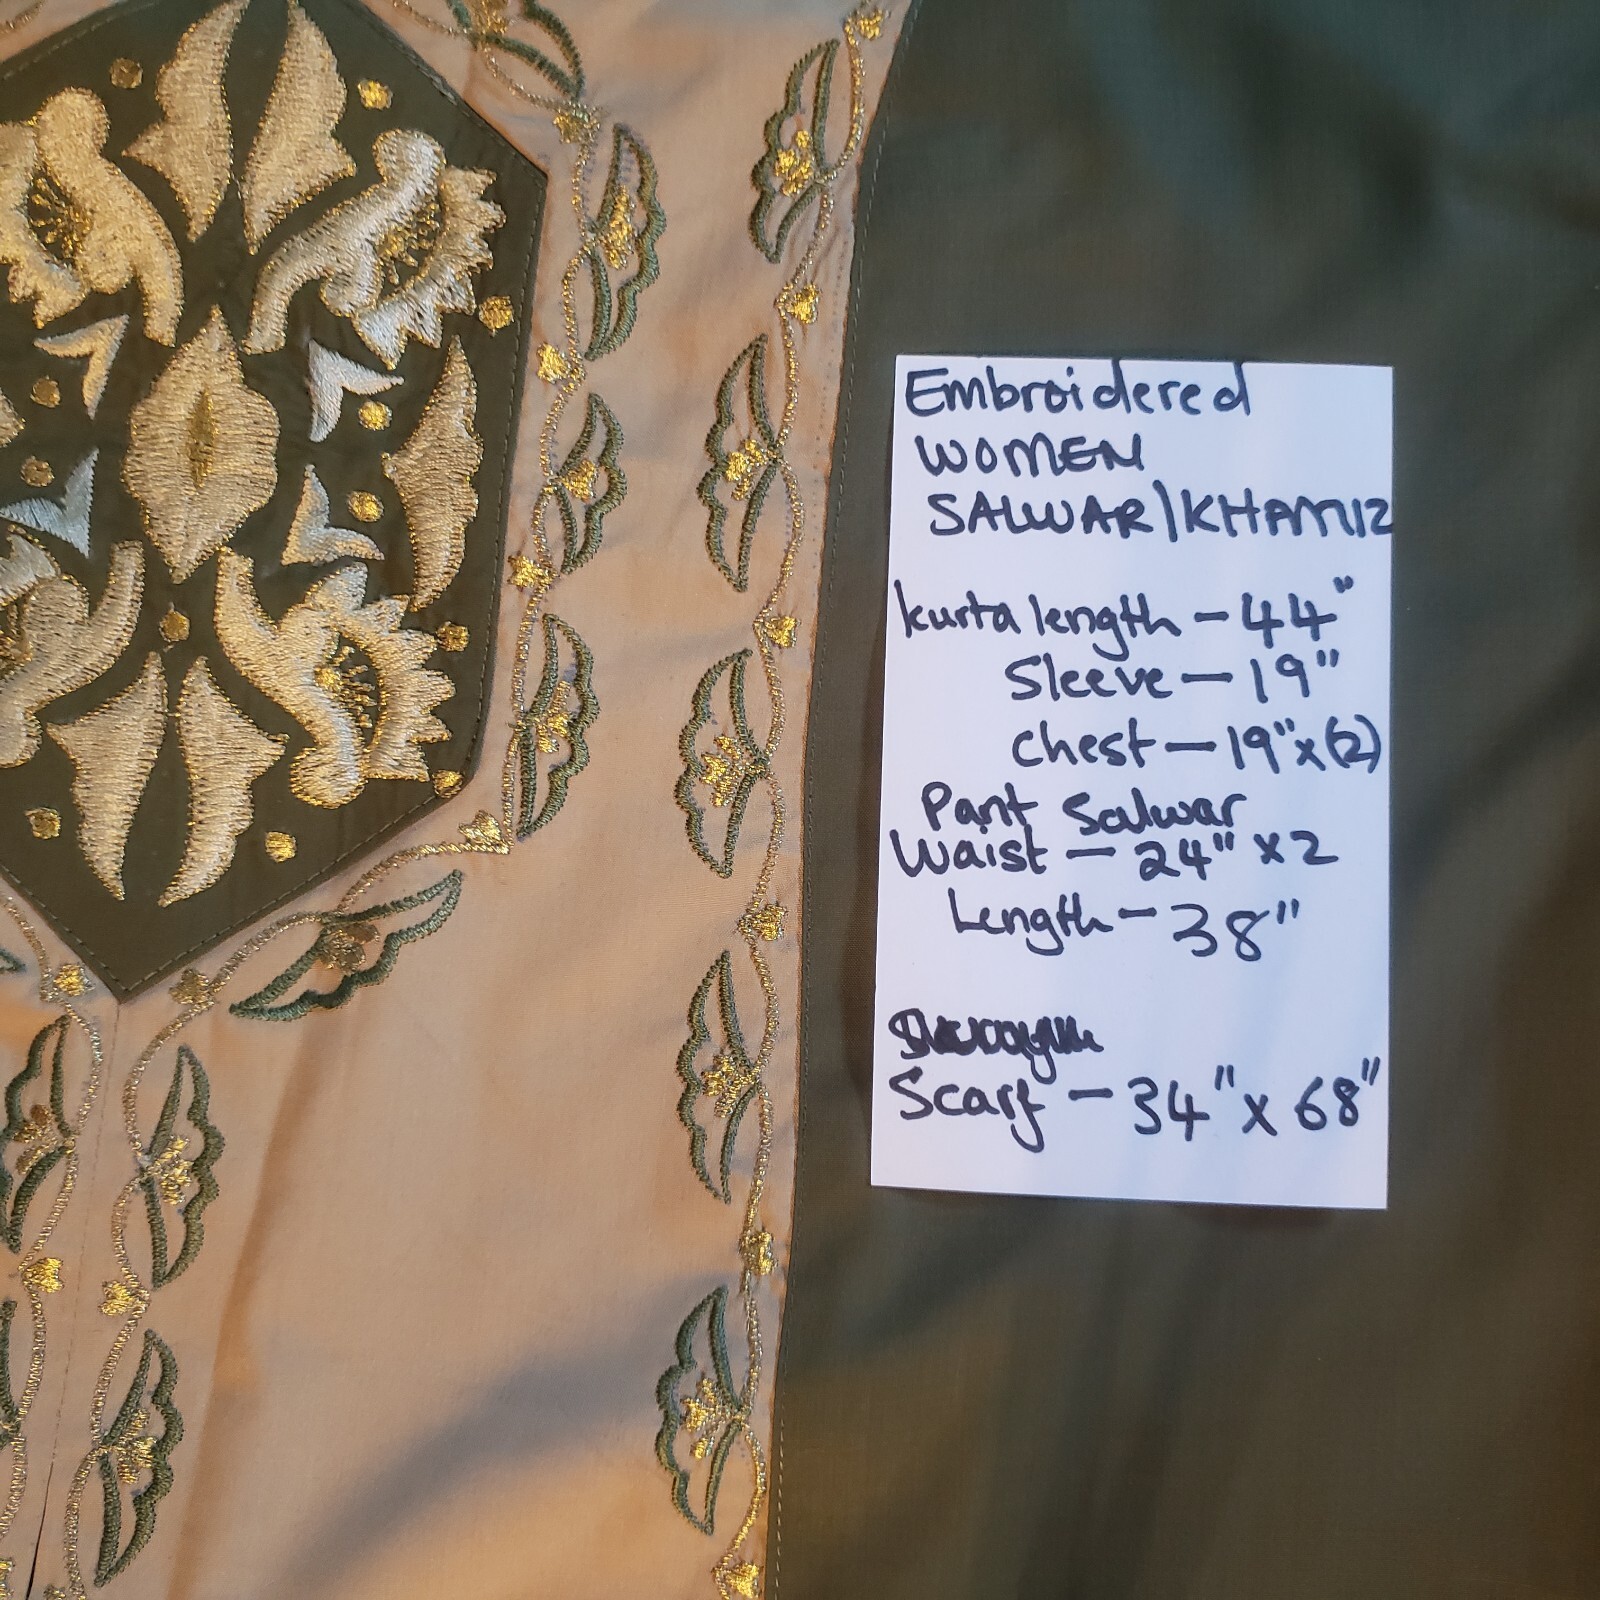 Embroidered
WOMEN
SALWAR/KHAMIZ
kurta length - 44"
Sleeve - 19"
chest - 19"x(2)
Pant Salwar
Waist - 24" x 2
Length - 38"
Scarf - 34" x 68"